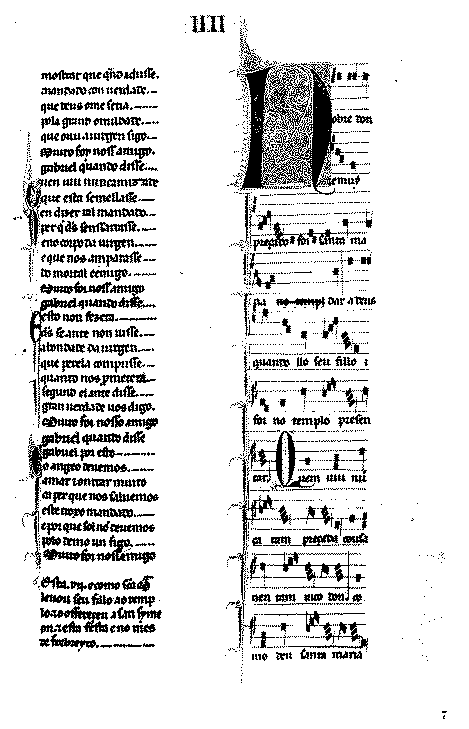 IIII
mostrar que q̃no adusse.
mandado con uerdade.
que deus ome seria.
pola grand omildade.
que ouu a uirgen sigo.
Muito foy noss amigo.
gabriel quando disse.
uen uiu nunca
que esta semellasse.
en dizer tal mandado.
per q̃ d̃s s'ensserrasse.
eno corpo da uirgen.
e que nos amparasse
do mortal eemigo.
Muito foi noss amigo
gabriel quando disse.
esto non fezera.
d̃s se ante non uisse.
a bondade da uirgen.
que per ela comprisse.
quanto nos prometera.
segund el ante disse.
gran uerdade uos digo.
Muito foi nosso amigo
gabriel quando disse
gabriel por esto
o angeo deuemos.
amar e onrrar muito
ca per que nos saluemos
este troxo mandado.
e por que foi no
Muito foi noss amigo
Esta e como s̃ca
leuou seu fillo ao temp
lo e o offereçeu a san syme
on. e esta festa e no mes
de febreyro.
Nobre don
e mui
preçado foi santa ma
ria no templ dar a deus
quando llo seu fillo i
foi no templo presen
tar. Quen uiu nũ
ca tam preçada cousa
nen tam rico don. co
mo deu santa maria
7